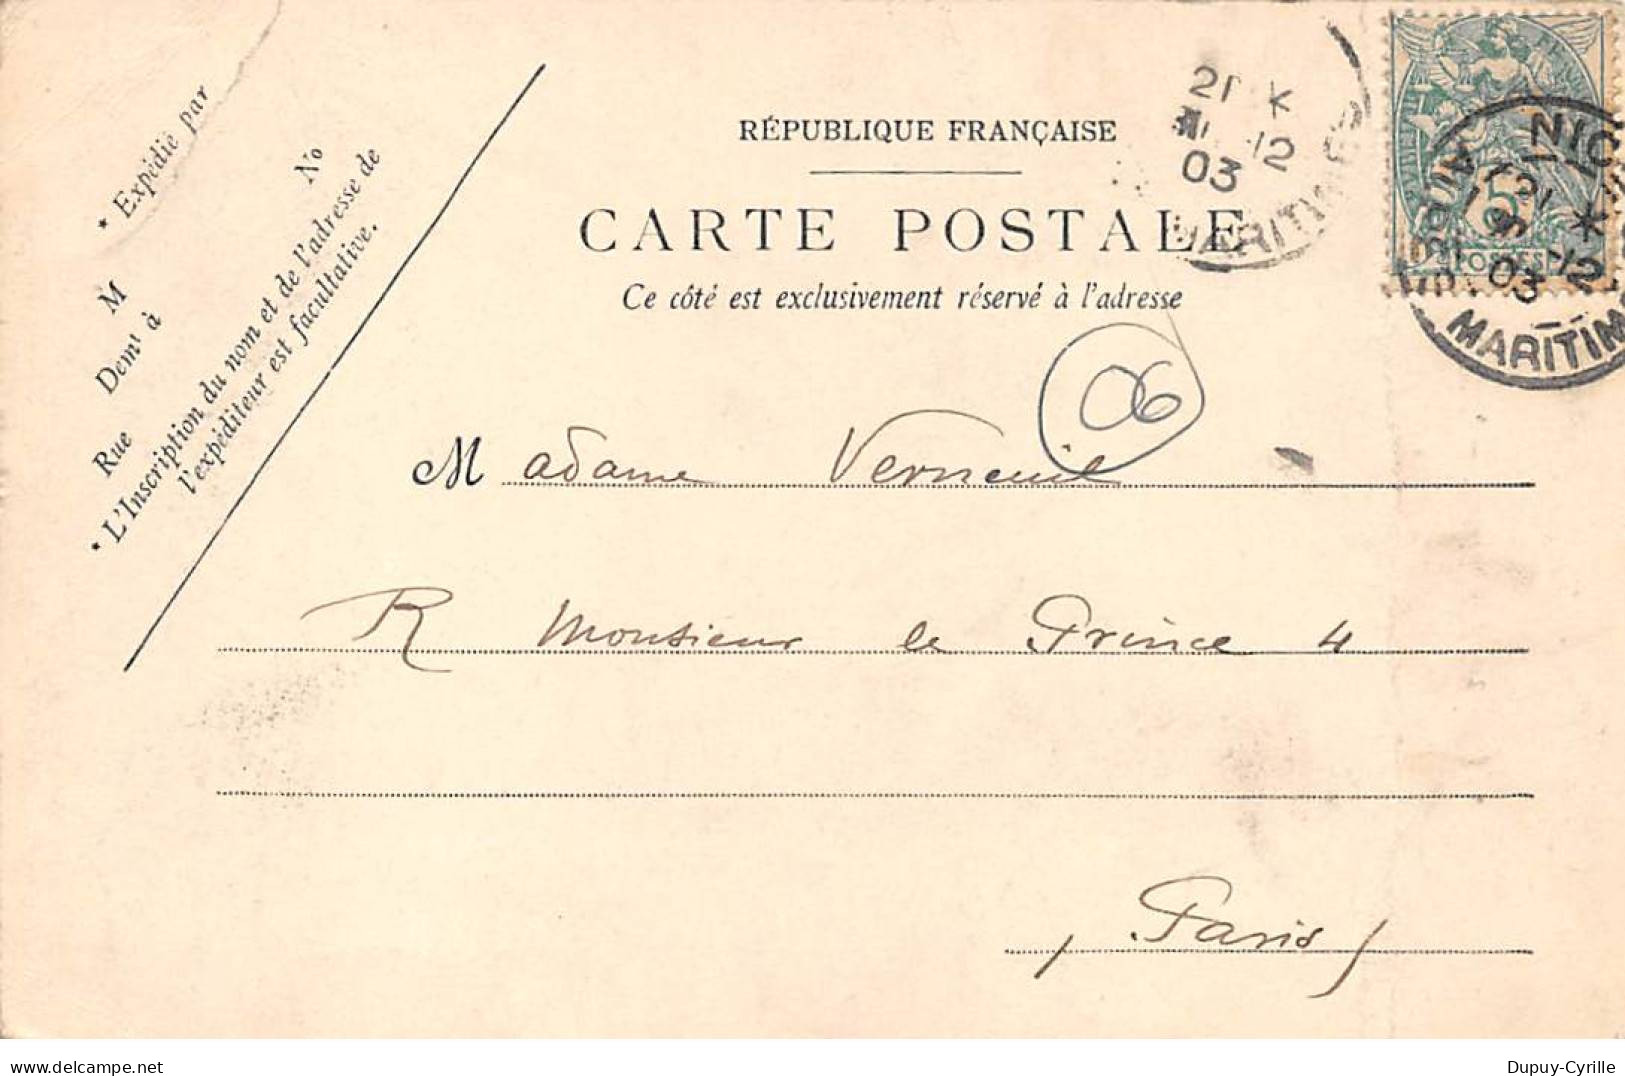 * Expédié par
M
Demt à
Rue No
* L'Inscription du nom et de l'adresse de
l'expéditeur est facultative.
RÉPUBLIQUE FRANÇAISE
CARTE POSTALE
Ce côté est exclusivement réservé à l'adresse
21 *
12
03
MARITIMES
5
POSTES
NIC
12
03
MARITIM
06
Madame Verneuil
R Monsieur le Prince 4
Paris
delcampe.net
Dupuy-Cyrille